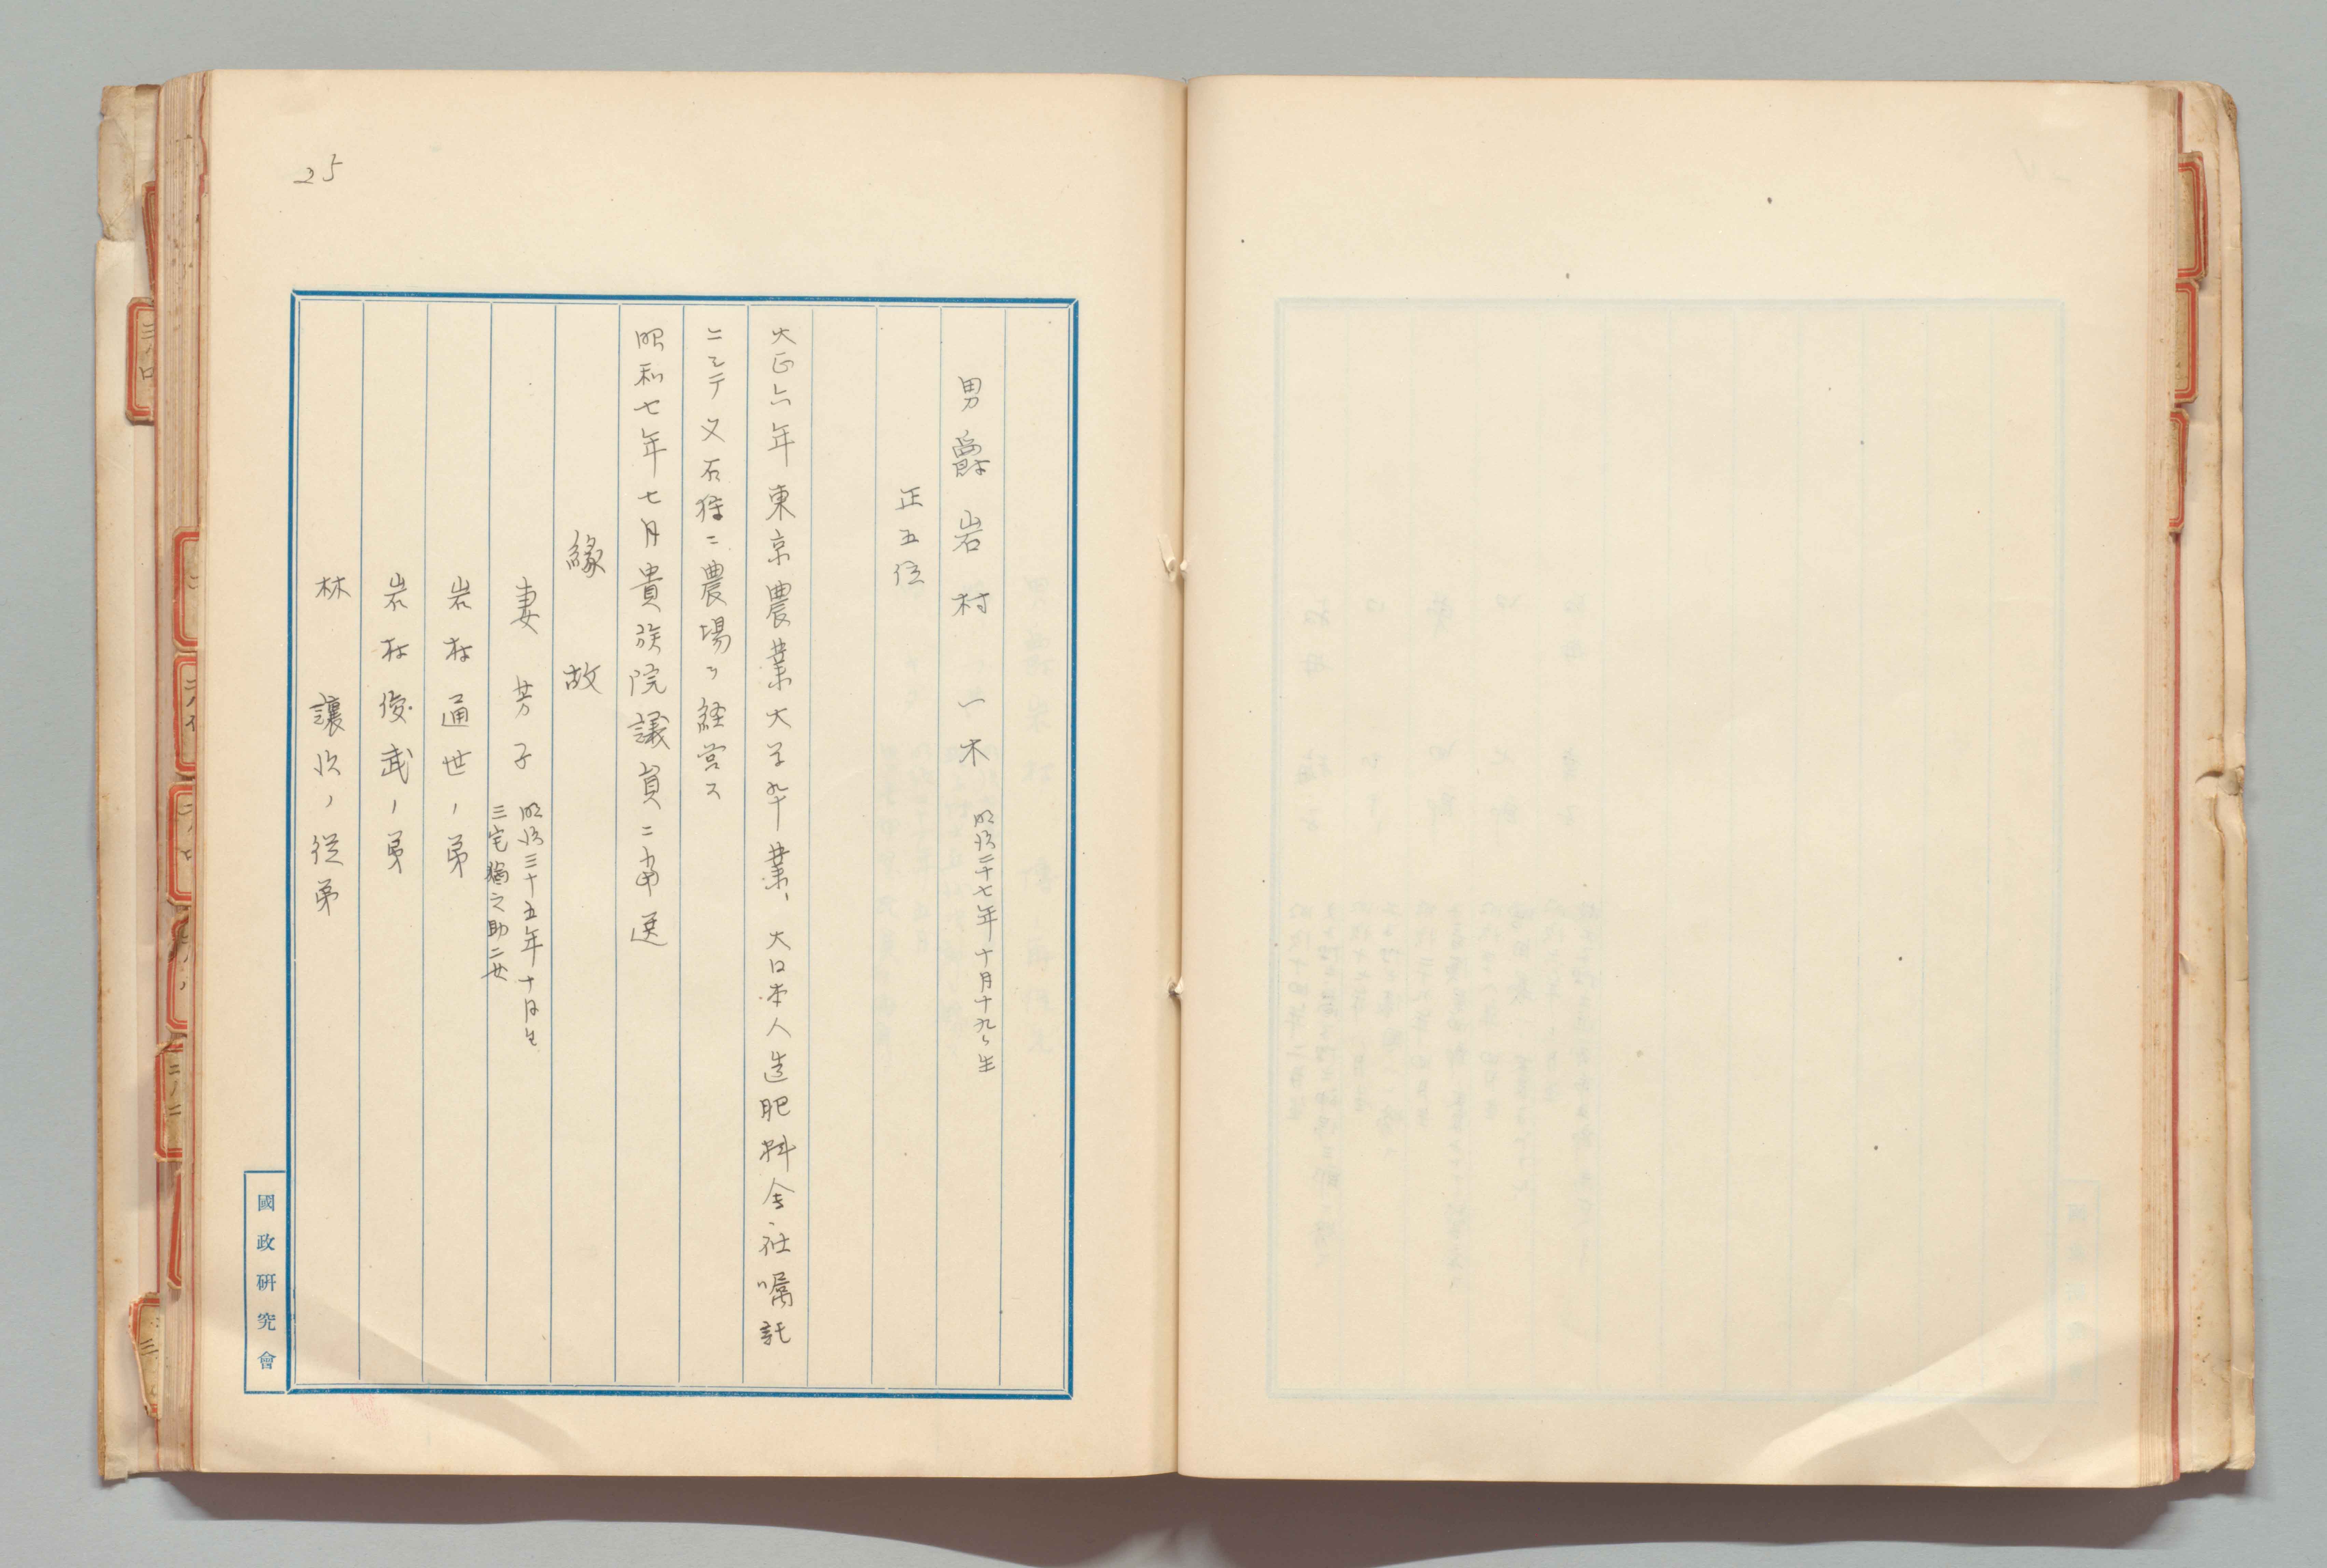 25
男爵 岩村一木 明治二十七年十月十九日生
正五位
大正六年東京農業大学卒業、大日本人造肥料会社嘱託
ニシテ又石狩ニ農場ヲ経営ス
昭和七年七月貴族院議員ニ当選
縁故
妻 芳子 明治三十五年十月生
三宅 之助二女
岩村通世ノ弟
岩村俊武ノ弟
林 譲次ノ従弟
國政研究會